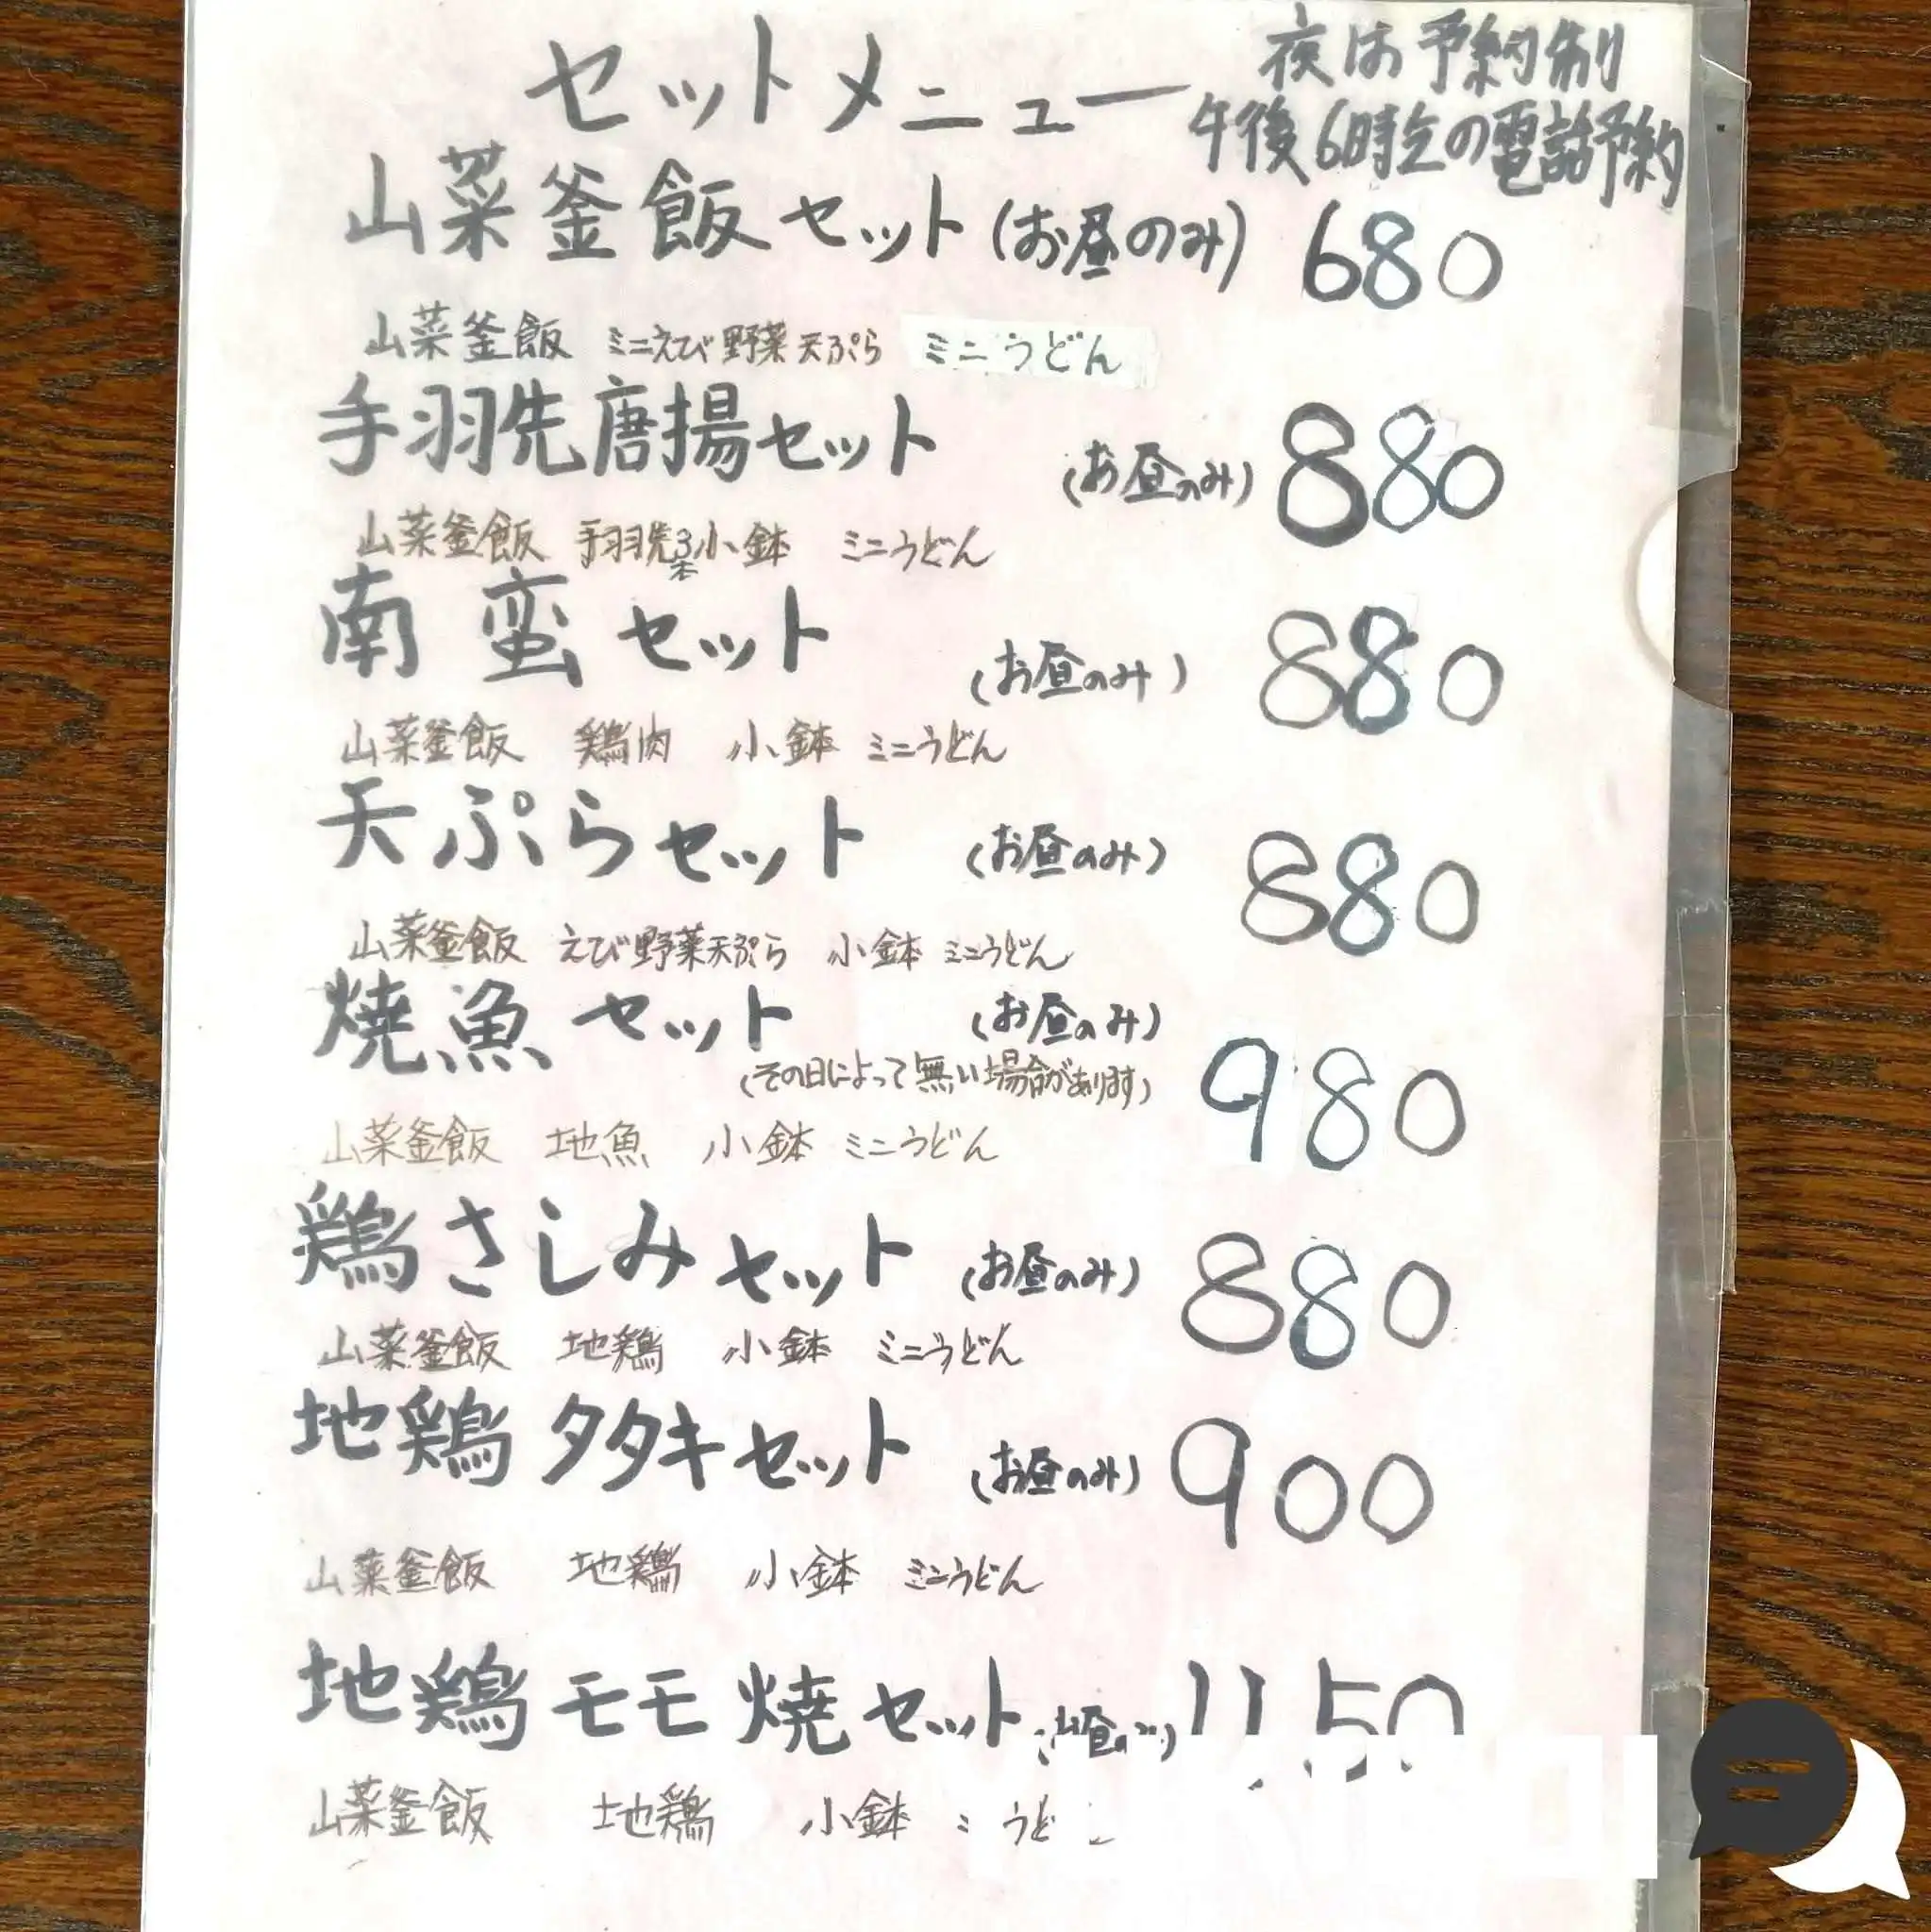 セットメニュー
夜は予約制
午後6時迄の電話予約
山菜釜飯セット(お昼のみ) 680
山菜釜飯 ミニえび野菜天ぷら ミニうどん
手羽先唐揚セット (お昼のみ) 880
山菜釜飯 手羽先3本 小鉢 ミニうどん
南蛮セット (お昼のみ) 880
山菜釜飯 鶏肉 小鉢 ミニうどん
天ぷらセット (お昼のみ) 880
山菜釜飯 えび野菜天ぷら 小鉢 ミニうどん
焼魚セット (お昼のみ) 980
(その日によって無い場合があります)
山菜釜飯 地魚 小鉢 ミニうどん
鶏さしみセット (お昼のみ) 880
山菜釜飯 地鶏 小鉢 ミニうどん
地鶏タタキセット (お昼のみ) 900
山菜釜飯 地鶏 小鉢 ミニうどん
地鶏モモ焼セット (お昼のみ) 1150
山菜釜飯 地鶏 小鉢